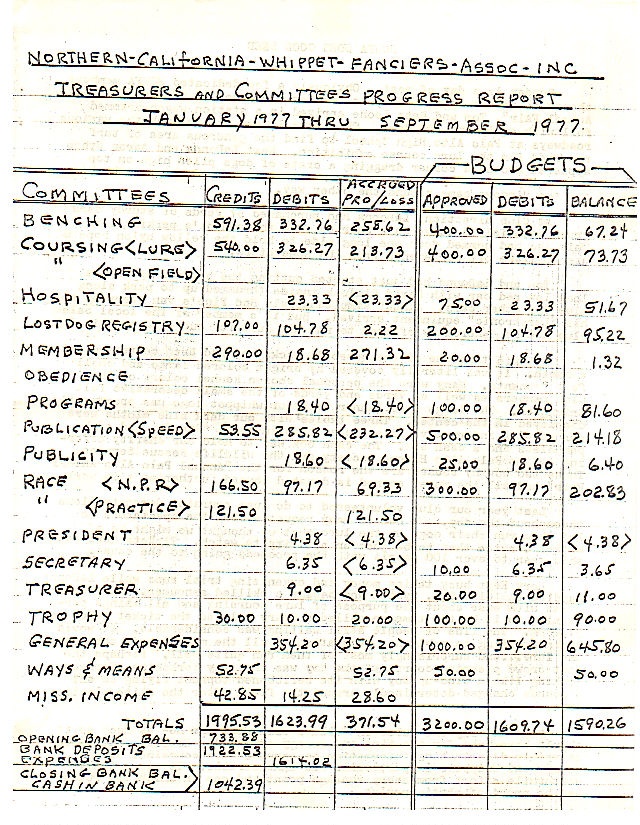 NORTHERN-CALIFORNIA-WHIPPET-FANCIERS-ASSOC-INC
TREASURERS AND COMMITTEES PROGRESS REPORT
JANUARY 1977 THRU SEPTEMBER 1977
BUDGETS
COMMITTEES CREDITS DEBITS ACCRUED PRO/LOSS APPROVED DEBITS BALANCE
BENCHING 591.38 332.76 258.62 400.00 332.76 67.24
COURSING <LURE> 540.00 326.27 213.73 400.00 326.27 73.73
" <OPEN FIELD>
HOSPITALITY 23.33 <23.33> 75.00 23.33 51.67
LOST DOG REGISTRY 107.00 104.78 2.22 200.00 104.78 95.22
MEMBERSHIP 290.00 18.68 271.32 20.00 18.68 1.32
OBEDIENCE
PROGRAMS 18.40 <18.40> 100.00 18.40 81.60
PUBLICATION <SPEED> 53.55 285.82 <232.27> 500.00 285.82 214.18
PUBLICITY 18.60 <18.60> 25.00 18.60 6.40
RACE <N.P.R> 166.50 97.17 69.33 300.00 97.17 202.83
" <PRACTICE> 121.50 121.50
PRESIDENT 4.38 <4.38> 4.38 <4.38>
SECRETARY 6.35 <6.35> 10.00 6.35 3.65
TREASURER 9.00 <9.00> 20.00 9.00 11.00
TROPHY 30.00 10.00 20.00 100.00 10.00 90.00
GENERAL EXPENSES 354.20 <354.20> 1000.00 354.20 645.80
WAYS & MEANS 52.75 52.75 50.00 50.00
MISS. INCOME 42.85 14.25 28.60
TOTALS 1995.53 1623.99 371.54 3200.00 1609.74 1590.26
OPENING BANK BAL. 733.88
BANK DEPOSITS 1922.53
EXPENSES 1614.02
CLOSING BANK BAL.
CASH IN BANK 1042.39